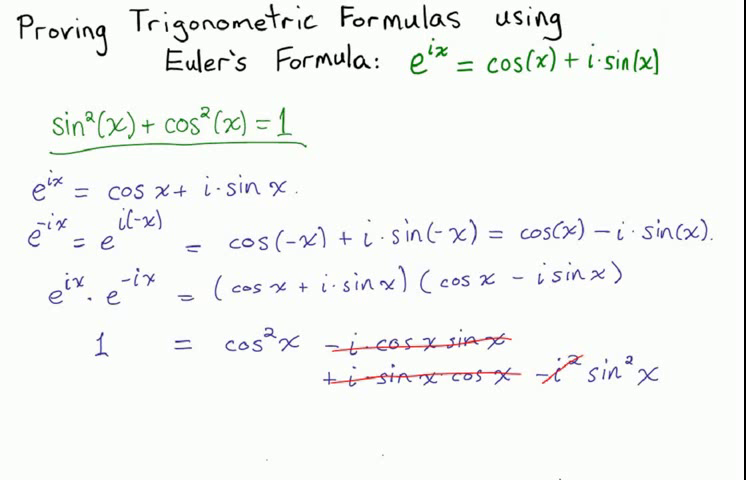 Proving Trigonometric Formulas using
Euler's Formula: e^{ix} = cos(x) + i·sin(x)
sin²(x) + cos²(x) = 1
e^{ix} = cos x + i·sin x.
e^{-ix} = e^{i(-x)} = cos(-x) + i·sin(-x) = cos(x) - i·sin(x).
e^{ix}·e^{-ix} = (cos x + i·sin x)(cos x - i sin x)
1 = cos²x - i·cos x sin x
+ i·sin x cos x - i² sin²x